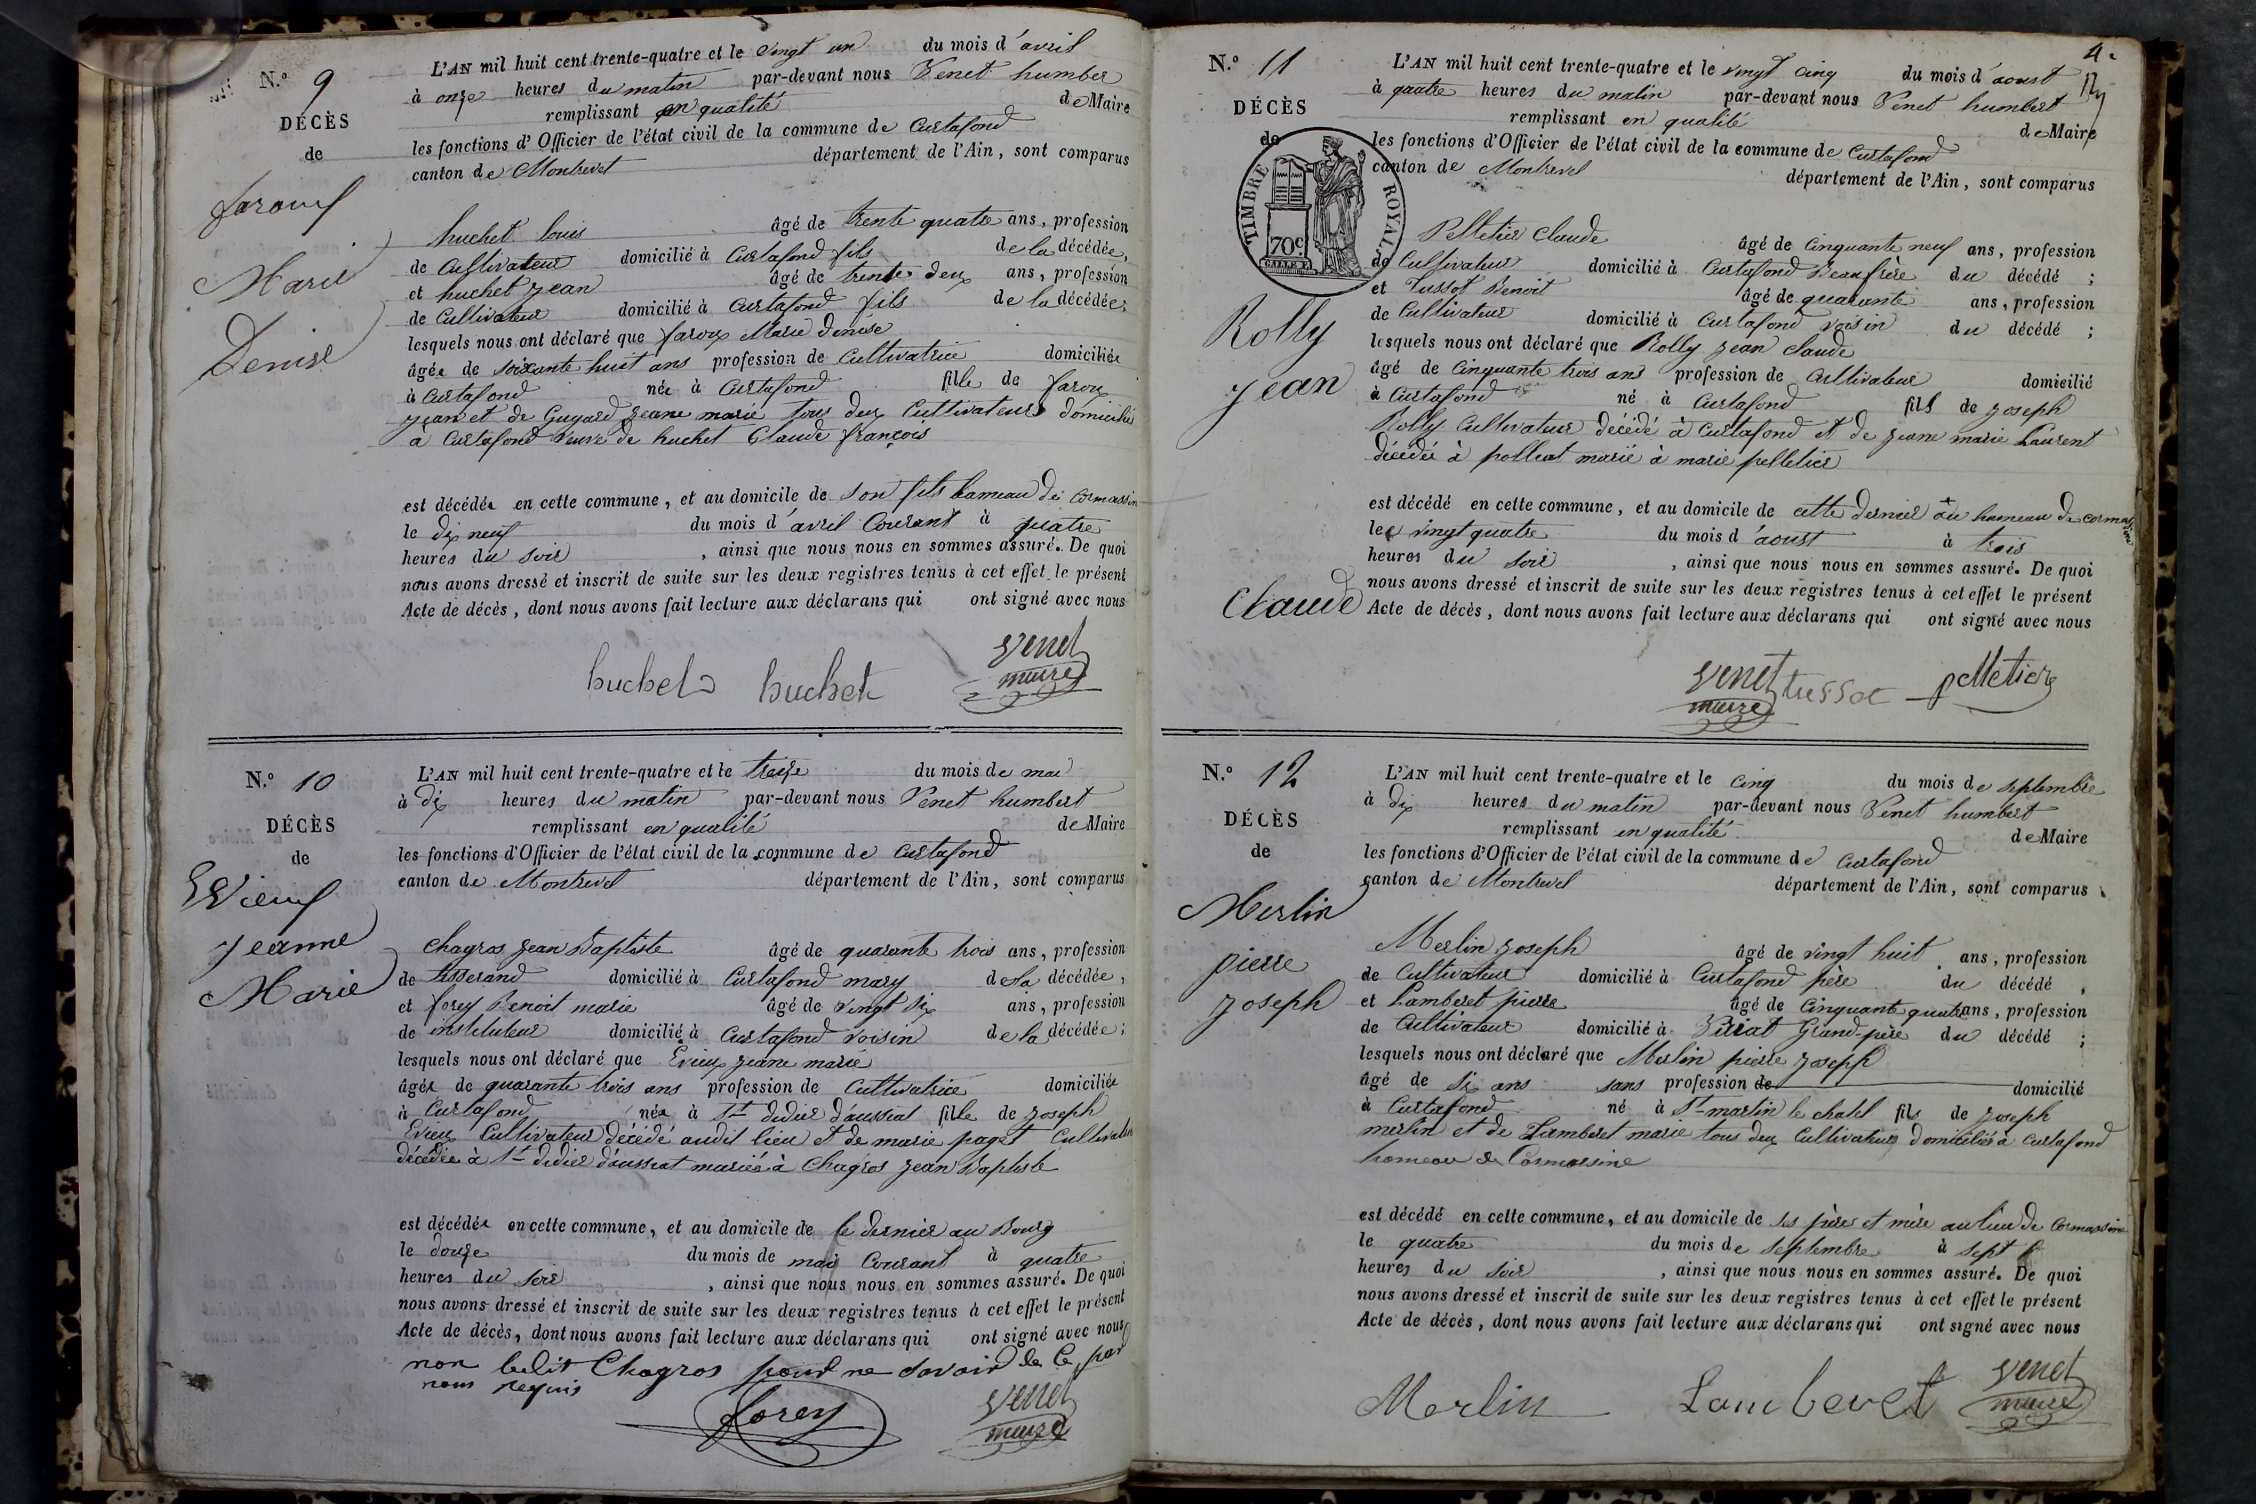 N.° 9
DÉCÈS
de
faroux
Marie
Denise
L'AN mil huit cent trente-quatre et le vingt un du mois d'avril
à onze heures du matin par-devant nous Venet humber
remplissant en qualité de Maire
les fonctions d'Officier de l'état civil de la commune de Curtafond
canton de Montrevel département de l'Ain, sont comparus
huchet louis âgé de trente quatre ans, profession
de Cultivateur domicilié à Curtafond fils de la décédée,
et huchet jean âgé de trente deux ans, profession
de Cultivateur domicilié à Curtafond fils de la décédée;
lesquels nous ont déclaré que faroux Marie denise
âgée de soixante huit ans profession de Cultivatrice domiciliée
à Curtafond née à Curtafond fille de faroux
jean et de Guyard jeane marie tous deux Cultivateurs domiciliés
à Curtafond veuve de huchet Claude françois
est décédée en cette commune, et au domicile de son fils hameau de cormassin
le dix neuf du mois d'avril Courant à quatre
heures du soir, ainsi que nous nous en sommes assuré. De quoi
nous avons dressé et inscrit de suite sur les deux registres tenus à cet effet le présent
Acte de décès, dont nous avons fait lecture aux déclarans qui ont signé avec nous
huchet huchet venet
maire
N.° 10
DÉCÈS
de
Evieux
jeanne
Marie
L'AN mil huit cent trente-quatre et le treize du mois de mai
à dix heures du matin par-devant nous Venet humbert
remplissant en qualité de Maire
les fonctions d'Officier de l'état civil de la commune de Curtafond
canton de Montrevel département de l'Ain, sont comparus
Chagros jean Baptiste âgé de quarante trois ans, profession
de tisserand domicilié à Curtafond mary de la décédée,
et forey Benoit marie âgé de vingt six ans, profession
de instituteur domicilié à Curtafond voisin de la décédée;
lesquels nous ont déclaré que Evieux jeane marie
âgée de quarante trois ans profession de Cultivatrice domiciliée
à Curtafond née à St didier d'aussiat fille de joseph
Evieux Cultivateur décédé audit lieu et de marie paget Cultivatrice
décédée à St didier d'aussiat mariée à Chagros jean Baptiste
est décédée en cette commune, et au domicile de ce dernier au Bourg
le douze du mois de mai Courant à quatre
heures du soir, ainsi que nous nous en sommes assuré. De quoi
nous avons dressé et inscrit de suite sur les deux registres tenus à cet effet le présent
Acte de décès, dont nous avons fait lecture aux déclarans qui ont signé avec nous
non ledit Chagros pour ne savoir de ce par
nous requis
forey venet
maire
4.
N.° 11
DÉCÈS
de
TIMBRE ROYAL
70c
Rolly
jean
Claude
L'AN mil huit cent trente-quatre et le vingt cinq du mois d'aoust
à quatre heures du matin par-devant nous Venet humbert
remplissant en qualité de Maire
les fonctions d'Officier de l'état civil de la commune de Curtafond
canton de Montrevel département de l'Ain, sont comparus
Pelletier Claude âgé de Cinquante neuf ans, profession
de Cultivateur domicilié à Curtafond Beaufrère du décédé;
et Tussot Benoit âgé de quarante ans, profession
de Cultivateur domicilié à Curtafond voisin du décédé;
lesquels nous ont déclaré que Rolly jean claude
âgé de Cinquante trois ans profession de Cultivateur domicilié
à Curtafond né à Curtafond fils de joseph
Rolly Cultivateur décédé à Curtafond et de jeane marie Laurent
décédée à polliat marié à marie pelletier
est décédé en cette commune, et au domicile de cette dernier au hameau de cormassine
le vingt quatre du mois d'aoust à trois
heures du soir, ainsi que nous nous en sommes assuré. De quoi
nous avons dressé et inscrit de suite sur les deux registres tenus à cet effet le présent
Acte de décès, dont nous avons fait lecture aux déclarans qui ont signé avec nous
venet tussot pelletier
maire
N.° 12
DÉCÈS
de
Merlin
pierre
joseph
L'AN mil huit cent trente-quatre et le cinq du mois de septembre
à dix heures du matin par-devant nous Venet humbert
remplissant en qualité de Maire
les fonctions d'Officier de l'état civil de la commune de Curtafond
canton de Montrevel département de l'Ain, sont comparus
Merlin joseph âgé de vingt huit ans, profession
de Cultivateur domicilié à Curtafond père du décédé,
et Lamberet pierre âgé de Cinquante quatre ans, profession
de Cultivateur domicilié à Viriat Grand-père du décédé;
lesquels nous ont déclaré que Merlin pierre joseph
âgé de six ans sans profession de domicilié
à Curtafond né à St-martin le chatel fils de joseph
merlin et de Lamberet marie tous deux Cultivateurs domiciliés à Curtafond
hameau de Cormassine
est décédé en cette commune, et au domicile de ses pères et mère au lieu de Cormassine
le quatre du mois de septembre à sept
heures du soir, ainsi que nous nous en sommes assuré. De quoi
nous avons dressé et inscrit de suite sur les deux registres tenus à cet effet le présent
Acte de décès, dont nous avons fait lecture aux déclarans qui ont signé avec nous
Merlin Lamberet venet
maire